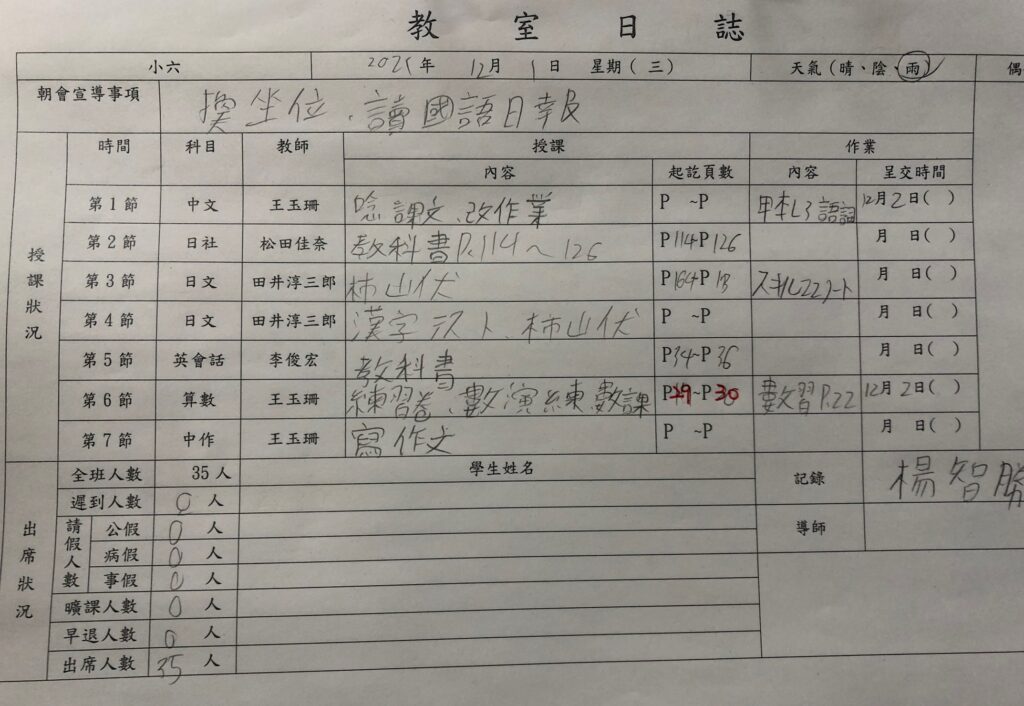 教室日誌
小六 2021年 12月 1日 星期(三) 天氣(晴、陰、雨) 偶
朝會宣導事項 換坐位、讀國語日報
時間 科目 教師 授課 作業
內容 起訖頁數 內容 呈交時間
授課狀況
第1節 中文 王玉珊 唸課文、改作業 P ~P 甲本L3語詞 12月2日( )
第2節 日社 松田佳奈 教科書P.114～126 P114~P126 月 日( )
第3節 日文 田井淳三郎 柿山伏 P164~P 月 日( )
第4節 日文 田井淳三郎 漢字テスト、柿山伏 P ~P 月 日( )
第5節 英會話 李俊宏 教科書 P34~P36 月 日( )
第6節 算數 王玉珊 練習卷、數演練、數課 P29~P30 數習P.22 12月2日( )
第7節 中作 王玉珊 寫作文 P ~P 月 日( )
出席狀況
全班人數 35人 學生姓名 記錄 楊智勝
遲到人數 0人
請假人數 公假 0人 導師
病假 0人
事假 0人
曠課人數 0人
早退人數 0人
出席人數 35人